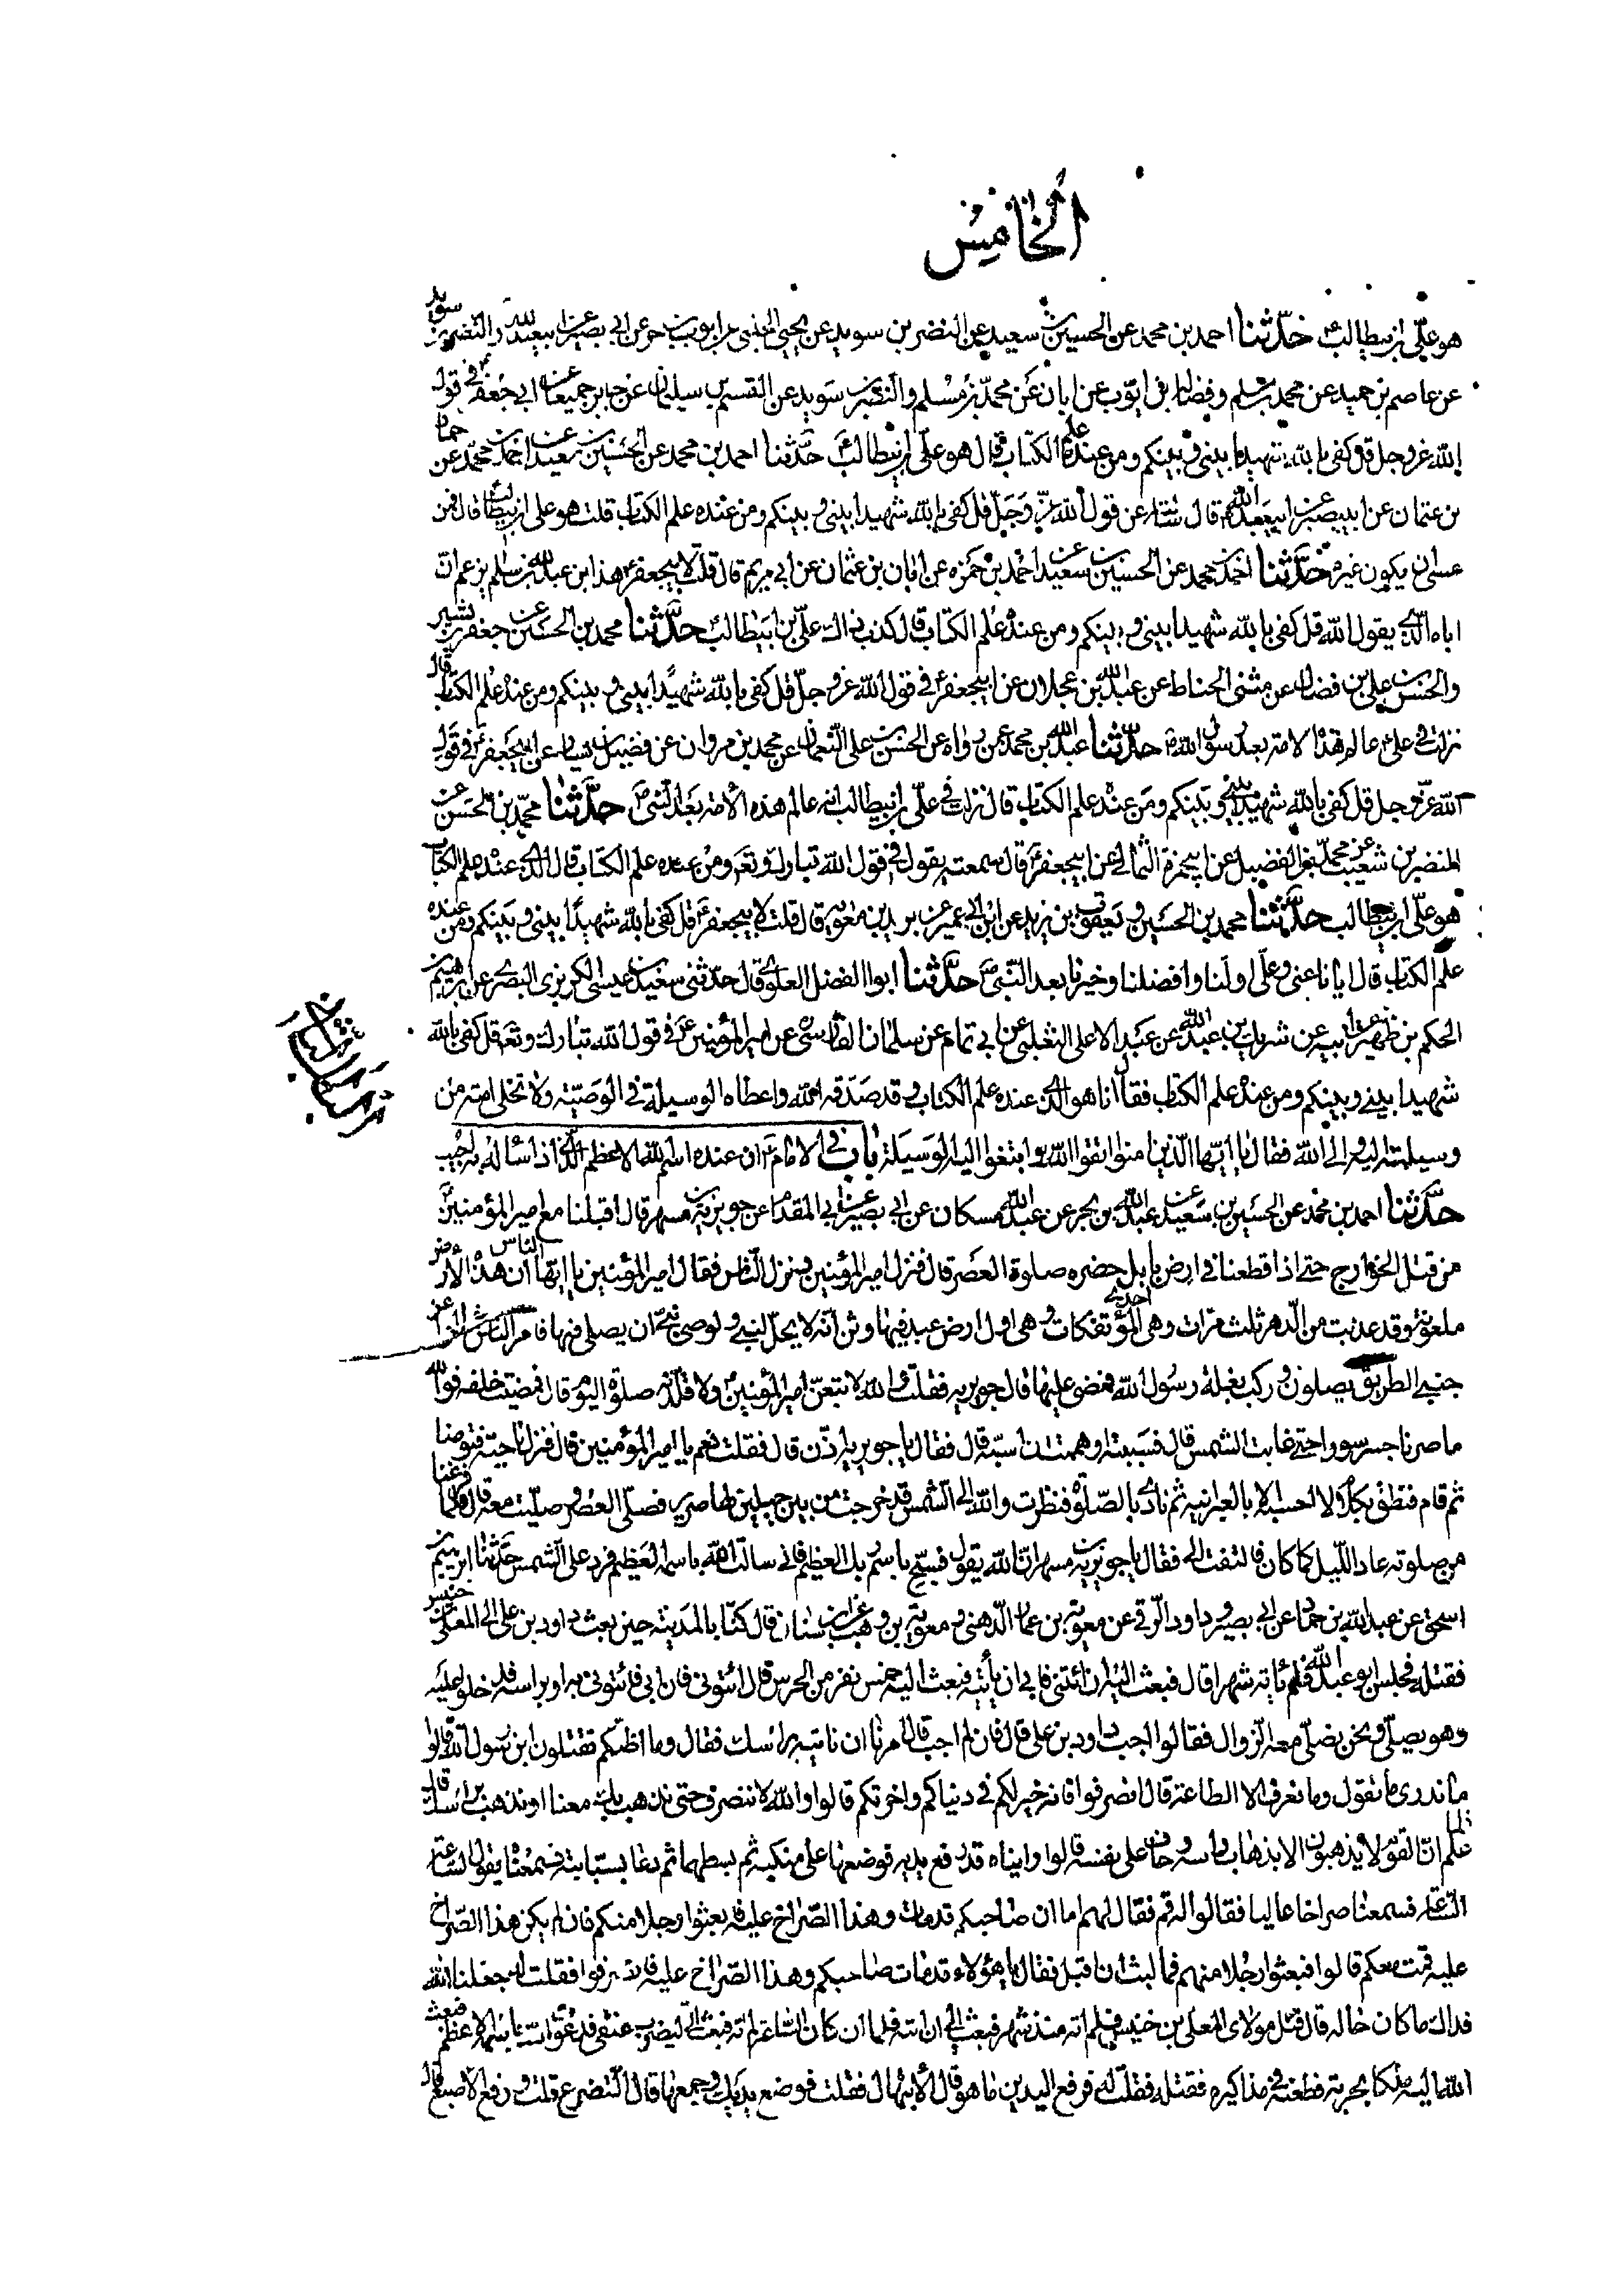 الخامس
هو علي بن ابيطالب ع حدّثنا احمد بن محمد عن الحسين بن سعيد عن النضر بن سويد عن يحيى الحلبي عن ايوب بن حر عن ابي بصير عن ابيعبد الله والنضر بن سويد
عن عاصم بن حميد عن محمد بن مسلم وفضاله بن ايّوب عن ابان عن محمّد بن مسلم والنضر بن سويد عن القسم بن سليمان عن جابر جميعا عن ابي جعفر ع في قول
الله عز وجل قل كفى بالله شهيدا بيني وبينكم ومن عنده علم الكتاب قال هو علي بن ابيطالب ع حدّثنا احمد بن محمد عن الحسين بن سعيد عن احمد بن محمد عن حماد
بن عثمان عن ابي بصير عن ابيعبد الله ع قال سئلته عن قول الله عزّ وجلّ قل كفى بالله شهيدا بيني وبينكم ومن عنده علم الكتاب قلت هو علي بن ابيطالب قال فمن
عسى ان يكون غيره حدّثنا احمد بن محمد عن الحسين بن سعيد عن احمد بن حمزه عن ابان بن عثمان عن ابي مريم قال قلت لابيجعفر ع هذا ابن عبد الله بن سلام يزعم ان
اباه الذي يقول الله قل كفى بالله شهيدا بيني وبينكم ومن عنده علم الكتاب قال كذب ذاك علي بن ابيطالب ع حدّثنا محمد بن الحسين عن جعفر بن بشير
والحسن بن علي بن فضال عن مثنى الحناط عن عبد الله بن عجلان عن ابيجعفر ع في قول الله عز وجلّ قل كفى بالله شهيدا بيني وبينكم ومن عنده علم الكتاب قال
نزلت في علي ع عالم هذه الامة بعد رسول الله ص حدّثنا عبد الله بن محمد عمن رواه عن الحسن بن علي النعمان عن محمد بن مروان عن فضيل بن يسار عن ابيجعفر ع في قول
الله عزّ وجل قل كفى بالله شهيدا بيني وبينكم ومن عنده علم الكتاب قال نزلت في علي بن ابيطالب انه عالم هذه الامة بعد النبي ص حدّثنا محمّد بن الحسن عن
النضر بن شعيب عن محمد بن الفضيل عن ابيحمزة الثمالي عن ابيجعفر ع قال سمعته يقول في قول الله تبارك وتع ومن عنده علم الكتاب قال الذي عنده علم الكتاب
هو علي بن ابيطالب حدّثنا محمد بن الحسين ويعقوب بن يزيد عن ابن ابي عمير عن بريد بن معويه قال قلت لابيجعفر ع قل كفى بالله شهيدا بيني وبينكم ومن عنده
علم الكتاب قال ايانا عنى وعلي اولنا وافضلنا وخيرنا بعد النّبي ص حدّثنا ابو الفضل العلوي قال حدّثني سعيد بن عيسى الكريزي البصري عن ابرهيم بن
الحكم بن ظهير عن ابيه عن شريك بن عبد الله عن عبد الاعلى الثعلبي عن ابي تمام عن سلمان الفارسي عن امير المؤمنين ع في قول الله تبارك وتع قل كفى بالله
شهيدا بيني وبينكم ومن عنده علم الكتاب فقال انا هو الذي عنده علم الكتاب وقد صدقه الله واعطاه الوسيلة في الوصيّة ولا تخلى امته من
وسيلته اليه والى الله فقال يا ايّها الّذين امنوا اتقوا الله وابتغوا اليه الوسيلة باب في الامام ع ان عنده اسم الله الاعظم الذي اذا سأله به اجيب
حدّثنا احمد بن محمد عن الحسين بن سعيد عن عبد الله بن بحر عن عبد الله مسكان عن ابي بصير عن ابي المقدام عن جويرية بن مسهر قال اقبلنا مع امير المؤمنين ع
من قتل الخوارج حتى اذا قطعنا في ارض بابل حضره صلوة العصر قال فنزل امير المؤمنين ونزل الناس فقال امير المؤمنين يا ايها الناس ان هذه الارض
ملعونة وقد عذبت من الدهر ثلث مرات وهي احدى المؤتفكات وهي اول ارض عبد فيها وثن انه لا يحلّ لنبي ولوصي نبي ان يصلي فيها فامر الناس فمالوا عن
جنبي الطريق يصلون وركب بغلة رسول الله فمضى عليها قال جويريه فقلت والله لا تبعنّ امير المؤمنين ولا قلدنه صلوة اليوم قال فمضيت خلفه فوالله
ما صرنا جسر سورا حتى غابت الشمس قال فسببته او هممت ان اسبّه قال فقال يا جويريه اذّن قال فقلت نعم يا امير المؤمنين قال فنزل ناحية فتوضا
ثم قام فنطق بكلام لا احسبه الا بالعبرانية ثم نادى بالصّلوة فنظرت والله الى الشمس قد خرجت من بين جبلين لها صرير فصلّى العصر وصلّيت معه قال فلما فرغنا
من صلوته عاد الليل كما كان فالتفت الي فقال يا جويرية بن مسهر ان الله يقول فسبّح باسم ربك العظيم فاني سالت الله باسمه العظيم فرد علي الشمس حدّثنا ابرهيم بن
اسحق عن عبد الله بن حماد عن ابي بصير وداود الرّقي عن معويه بن عمار الدّهني ومعوية بن وهب عن ابن سنان قال كنّا بالمدينة حين بعث داود بن علي الى المعلى بن خنيس
فقتله فجلس ابو عبد الله فلم ياته شهرا قال فبعث اليه ان ائتني فابى ان ياتيه فبعث اليه خمس نفر من الحرس قال ائتوني فان ابى فائتوني به او براسه فدخلوا عليه
وهو يصلّي ونحن نصلّي معه الزّوال فقالوا اجب داود بن علي قال فان لم اجب قال امرنا ان ناتيه براسك فقال وما اظنّكم تقتلون ابن رسول الله قالوا
ما ندري ما تقول وما نعرف الا الطاعة قال انصرفوا فانه خير لكم في دنياكم واخرتكم قالوا والله لا ننصرف حتى نذهب بك معنا او نذهب براسك قال
فلما علم انّ القوم لا يذهبون الا بذهاب راسه وخاف على نفسه قالوا راينا ه قد رفع يديه فوضعها على منكبيه ثم بسطهما ثم دعا بسبّابته فسمعنا يقول الساعة
السّاعة فسمعنا صراخا عاليا فقالوا له قم فقال لهم اما ان صاحبكم قد مات وهذا الصّراخ عليه فابعثوا رجلا منكم فان لم يكن هذا الصّراخ
عليه قمت معكم قالوا فبعثوا رجلا منهم فما لبث ان اقبل فقال يا هؤلاء قد مات صاحبكم وهذا الصّراخ عليه فانصرفوا فقلت له جعلنا الله
فداك ما كان حاله قال قتل مولاي المعلى بن خنيس فلم اته منذ شهر فبعث الي ان اتيه فلما ان كان السّاعة لم اته فبعث الي ليضرب عنقي فدعوت الله باسمه الاعظم فبعث
الله اليه ملكا بحربة فطعنه في مذاكيره فقتله فقلت له فرفع اليدين ما هو قال الابتهال فقلت فوضع يديك وجمعها قال التضرع قلت ورفع الاصبع قال